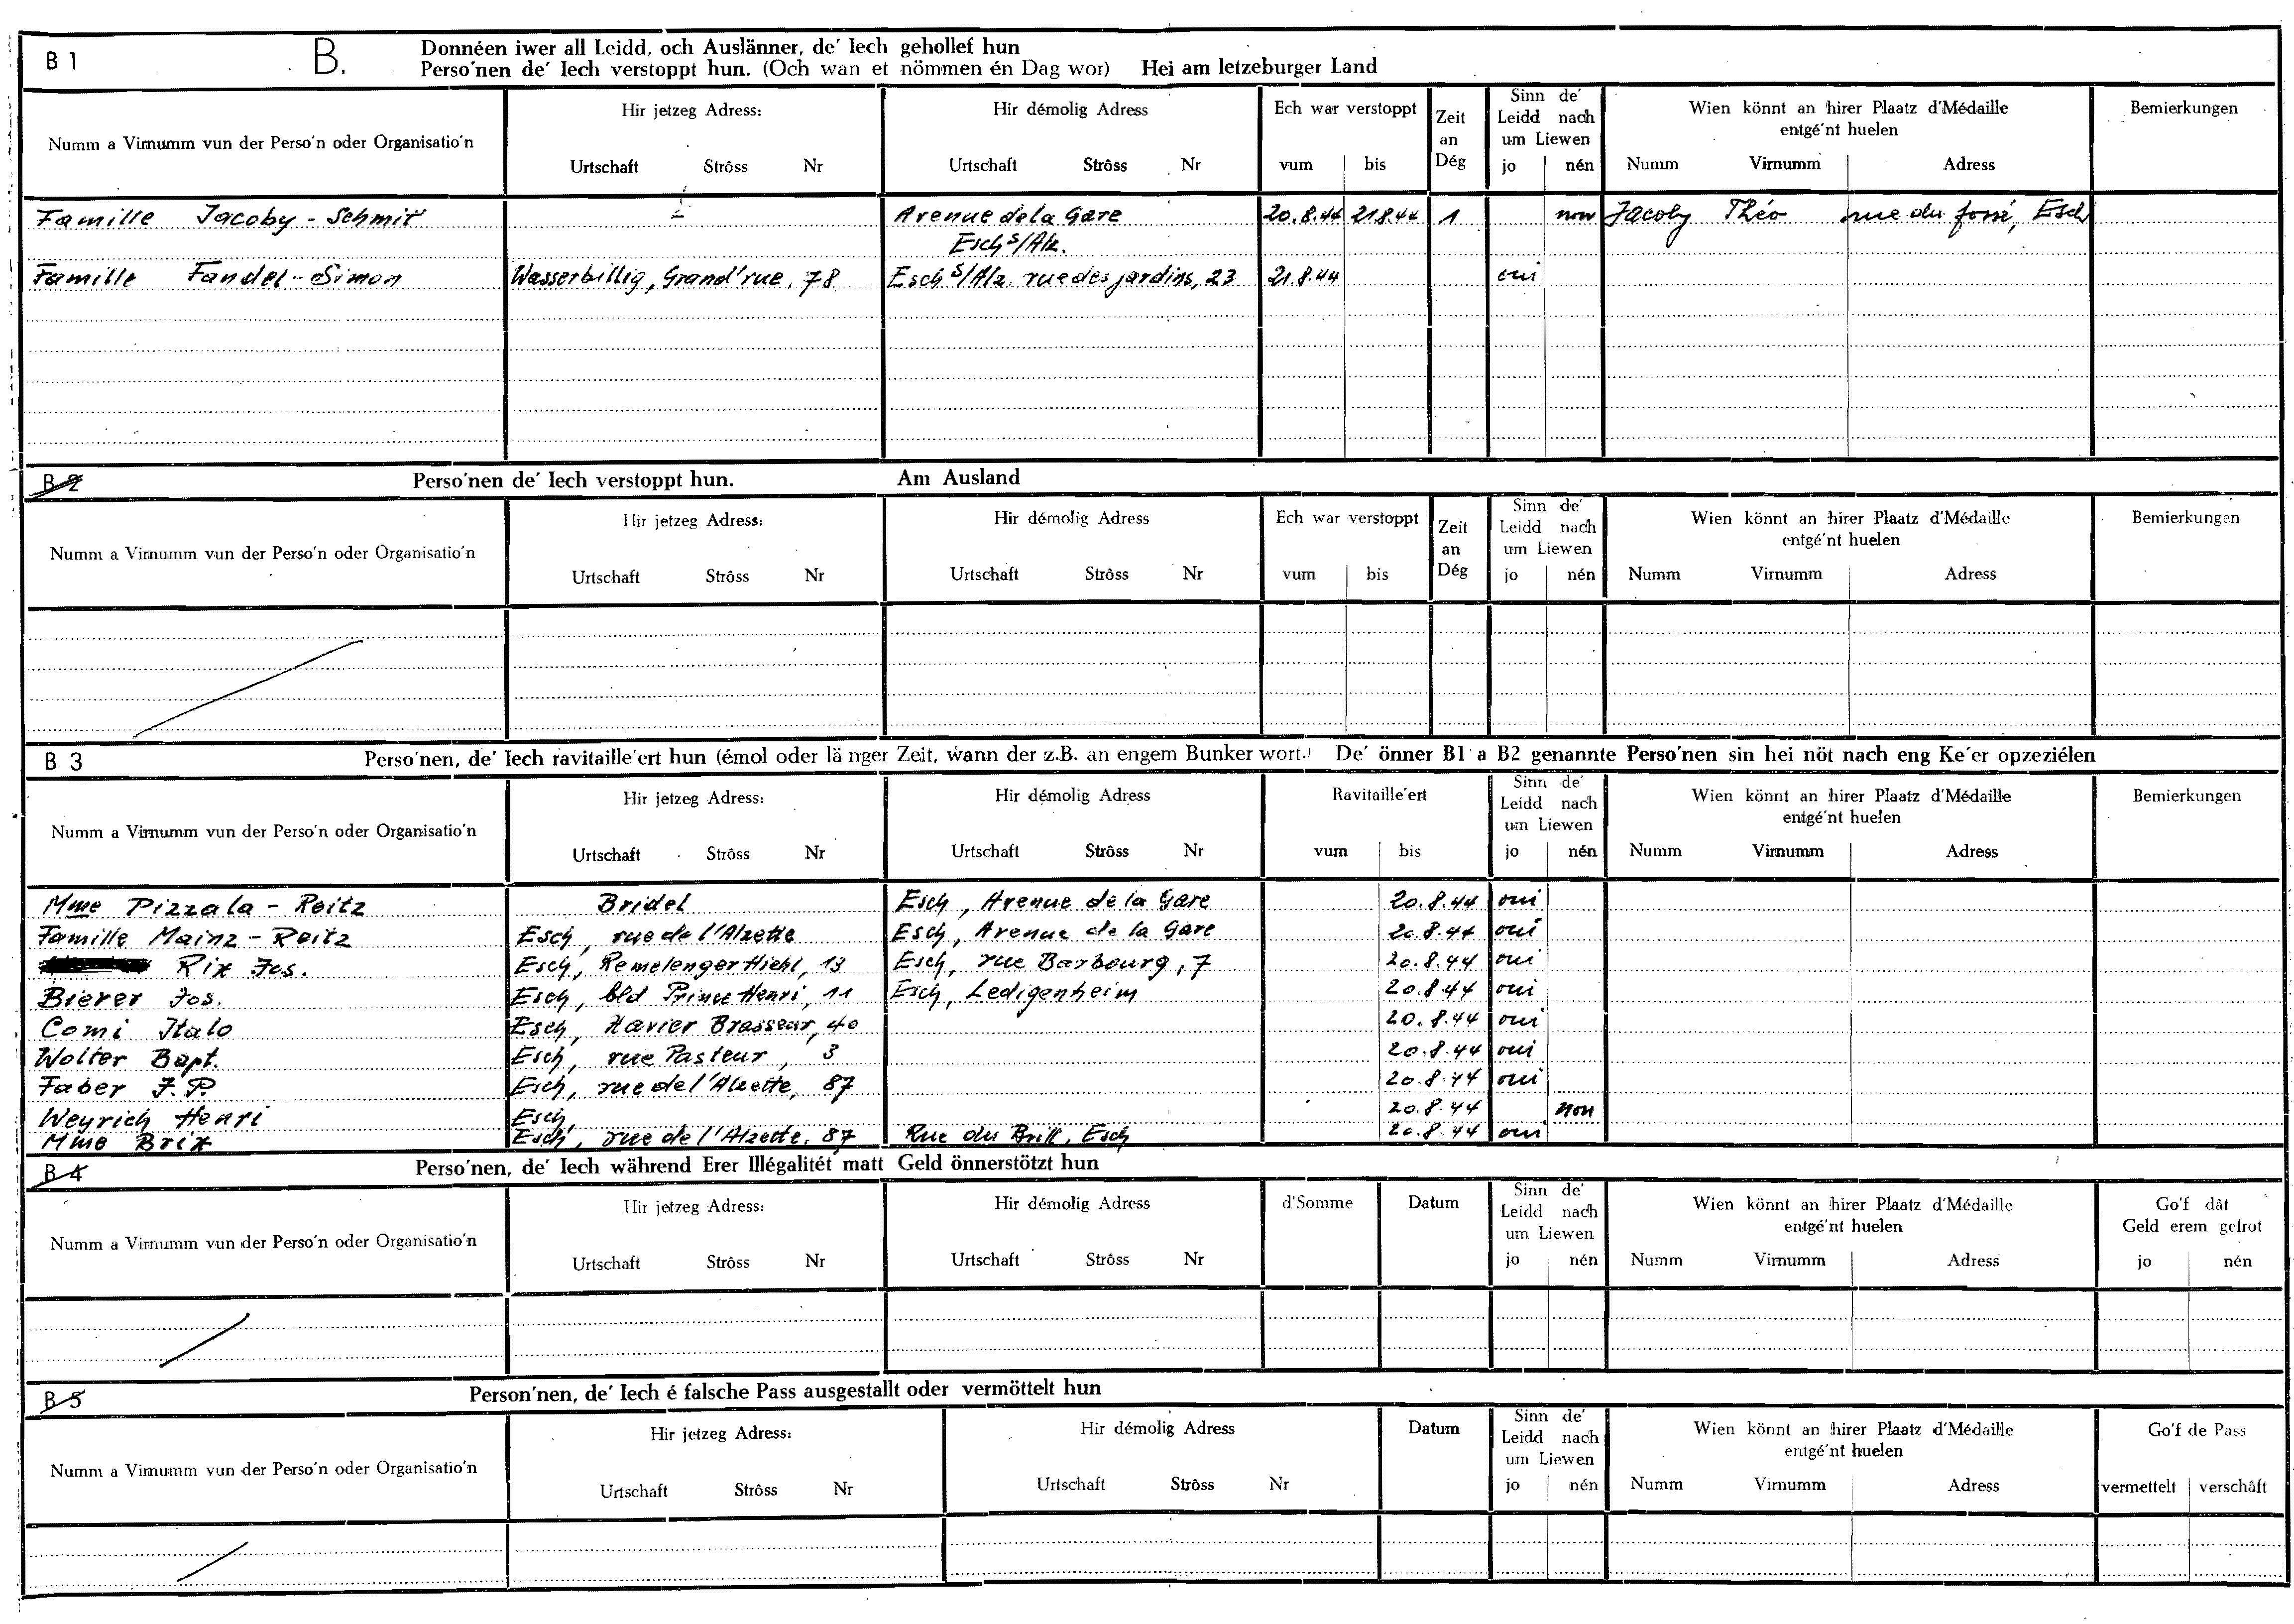 B 1 B. Donnéen iwer all Leidd, och Auslänner, de' Iech gehollef hun
Perso'nen de' Iech verstoppt hun. (Och wan et nömmen én Dag wor) Hei am letzeburger Land
Numm a Virnumm vun der Perso'n oder Organisatio'n
Hir jetzeg Adress:
Urtschaft Strôss Nr
Hir démolig Adress
Urtschaft Strôss Nr
Ech war verstoppt
vum bis
Zeit
an
Dég
Sinn de'
Leidd nach
um Liewen
jo nén
Wien könnt an hirer Plaatz d'Médaille
entgé'nt huelen
Numm Virnumm Adress
Bemierkungen
Famille Jacoby - Schmit Avenue de la Gare 20.8.44 21.8.44 1 non Jacoby Théo rue du fossé, Esch
Esch s/Alz.
Famille Fandel - Simon Wasserbillig, Grand'rue, 78 Esch s/Alz. rue des jardins, 23 21.8.44 oui
B 2 Perso'nen de' Iech verstoppt hun. Am Ausland
Numm a Virnumm vun der Perso'n oder Organisatio'n
Hir jetzeg Adress:
Urtschaft Strôss Nr
Hir démolig Adress
Urtschaft Strôss Nr
Ech war verstoppt
vum bis
Zeit
an
Dég
Sinn de'
Leidd nach
um Liewen
jo nén
Wien könnt an hirer Plaatz d'Médaille
entgé'nt huelen
Numm Virnumm Adress
Bemierkungen
B 3 Perso'nen, de' Iech ravitaille'ert hun (émol oder länger Zeit, wann der z.B. an engem Bunker wort.) De' önner B1 a B2 genannte Perso'nen sin hei nöt nach eng Ke'er opzeziélen
Numm a Virnumm vun der Perso'n oder Organisatio'n
Hir jetzeg Adress:
Urtschaft Strôss Nr
Hir démolig Adress
Urtschaft Strôss Nr
Ravitaille'ert
vum bis
Sinn de'
Leidd nach
um Liewen
jo nén
Wien könnt an hirer Plaatz d'Médaille
entgé'nt huelen
Numm Virnumm Adress
Bemierkungen
Mme Pizzala - Reitz Bridel Esch, Avenue de la Gare 20.8.44 oui
Famille Mainz - Reitz Esch, rue de l'Alzette Esch, Avenue de la Gare 20.8.44 oui
Rix Jos. Esch, Remelenger Hiehl, 13 Esch, rue Barbourg, 7 20.8.44 oui
Bierer Jos. Esch, bld Prince Henri, 11 Esch, Ledigenheim 20.8.44 oui
Comi Italo Esch, Xavier Brasseur, 40 20.8.44 oui
Wolter Bapt. Esch, rue Pasteur, 3 20.8.44 oui
Faber J.P. Esch, rue de l'Alzette, 87 20.8.44 oui
Weyrich Henri Esch, 20.8.44 non
Mme Brix Esch, rue de l'Alzette, 87 Rue du Brill, Esch 20.8.44 oui
B 4 Perso'nen, de' Iech während Erer Illégalitét matt Geld önnerstötzt hun
Numm a Virnumm vun der Perso'n oder Organisatio'n
Hir jetzeg Adress:
Urtschaft Strôss Nr
Hir démolig Adress
Urtschaft Strôss Nr
d'Somme
Datum
Sinn de'
Leidd nach
um Liewen
jo nén
Wien könnt an hirer Plaatz d'Médaille
entgé'nt huelen
Numm Virnumm Adress
Go'f dât
Geld erem gefrot
jo nén
B 5 Person'nen, de' Iech é falsche Pass ausgestallt oder vermöttelt hun
Numm a Virnumm vun der Perso'n oder Organisatio'n
Hir jetzeg Adress:
Urtschaft Strôss Nr
Hir démolig Adress
Urtschaft Strôss Nr
Datum
Sinn de'
Leidd nach
um Liewen
jo nén
Wien könnt an hirer Plaatz d'Médaille
entgé'nt huelen
Numm Virnumm Adress
Go'f de Pass
vermettelt verschâft